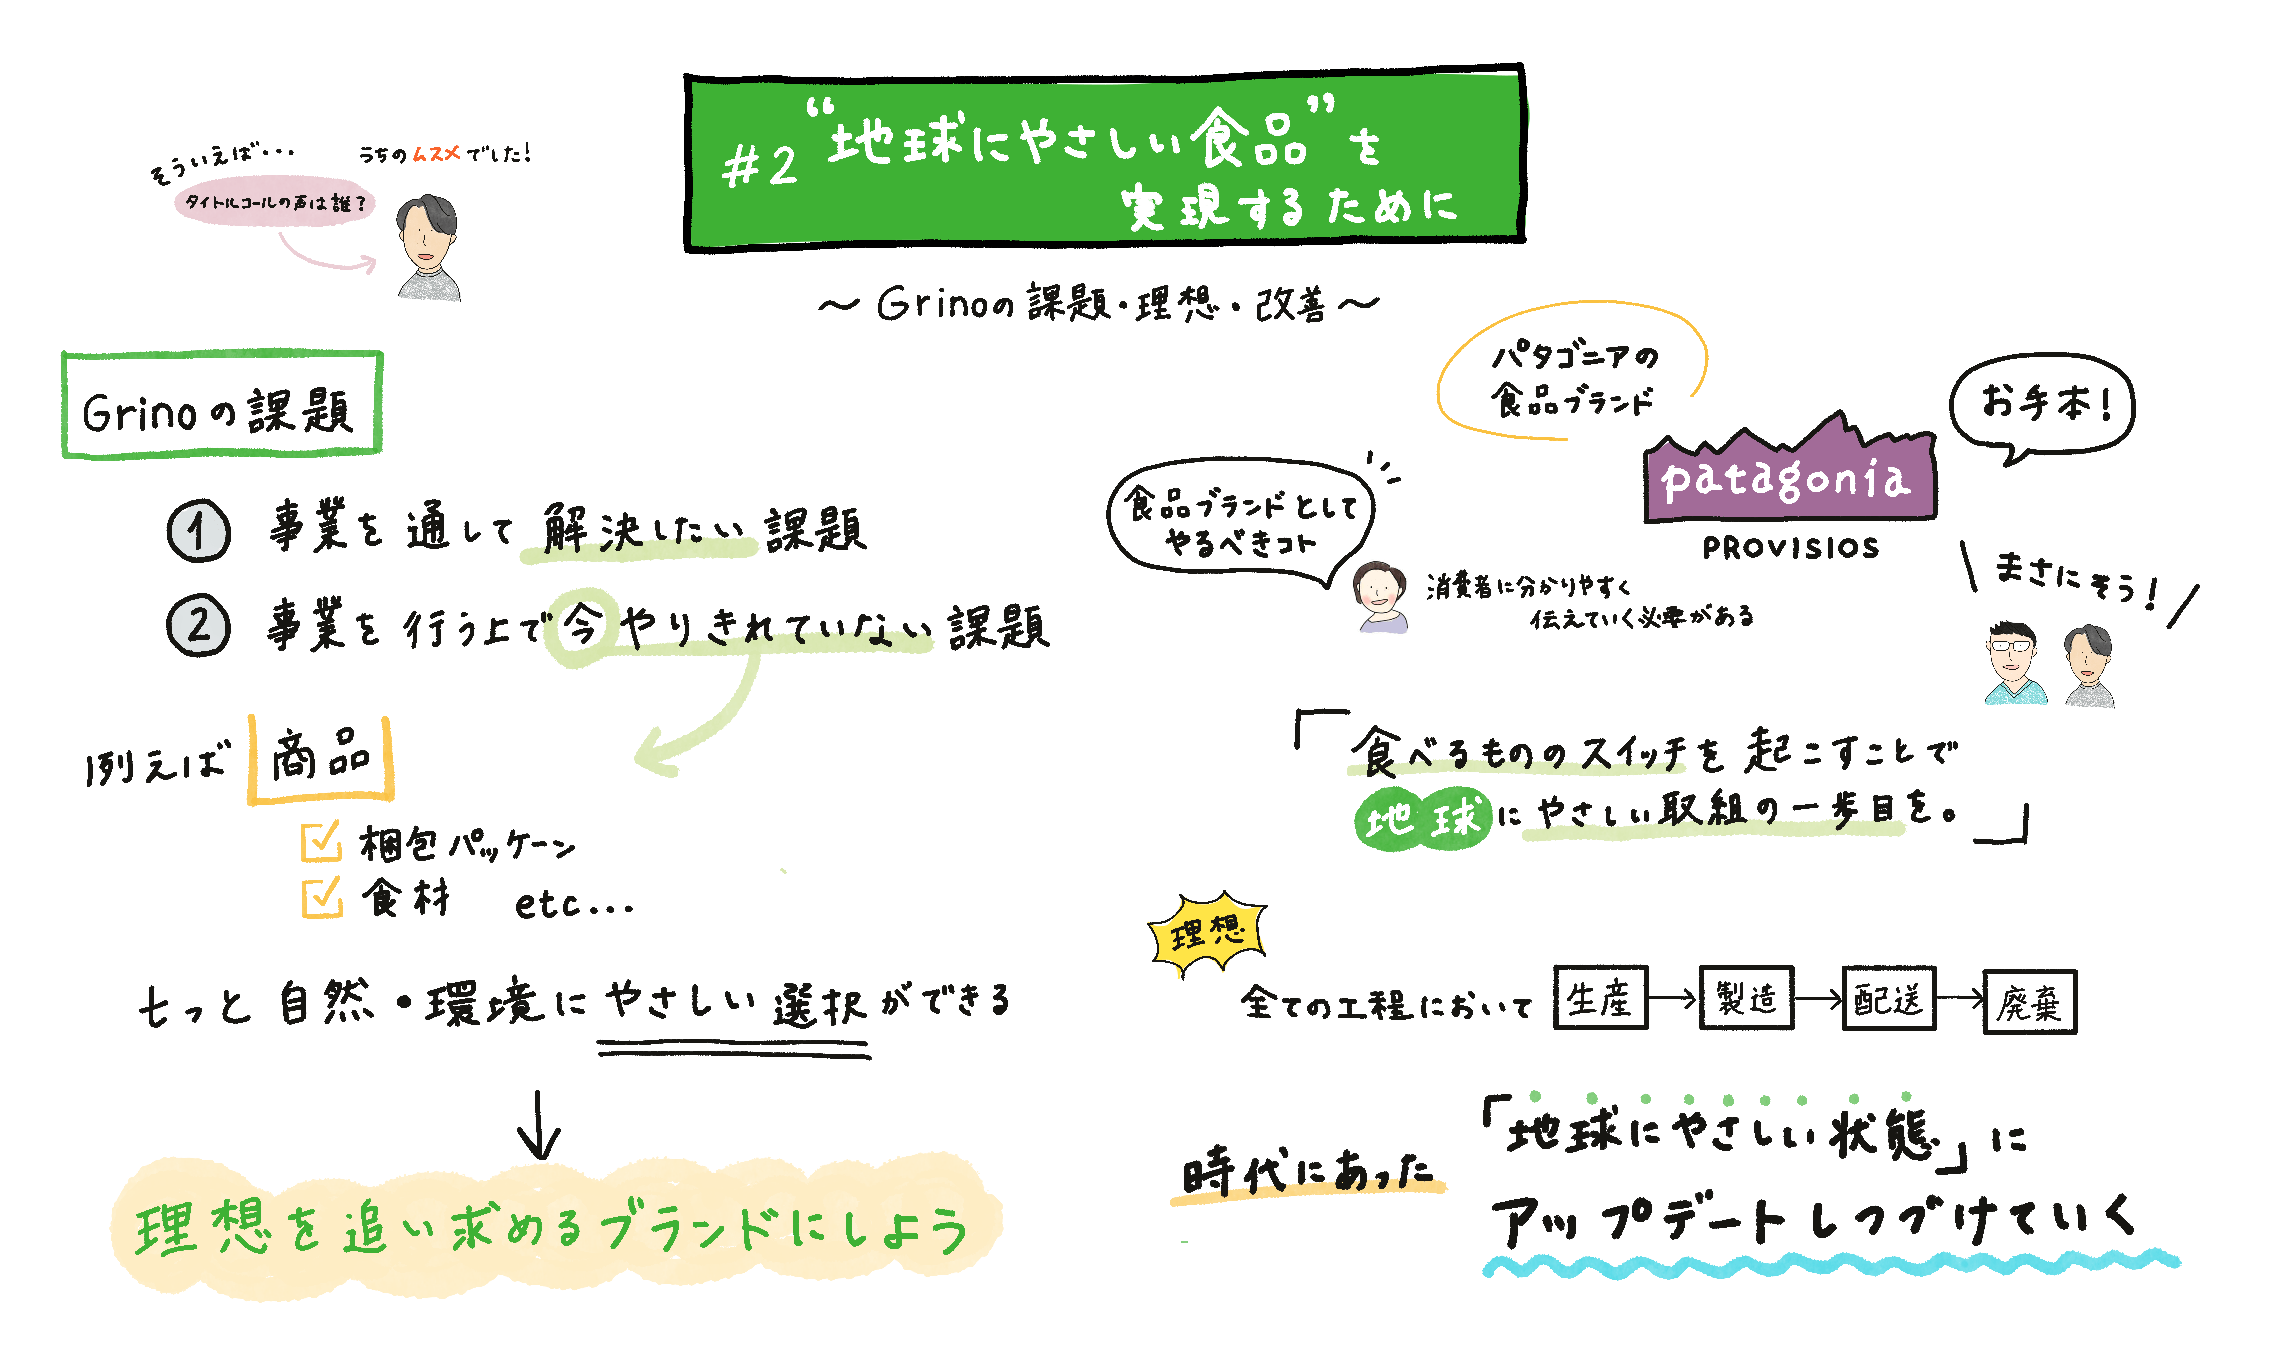 #2 “地球にやさしい食品”を
実現するために
〜Grinoの課題・理想・改善〜
そういえば・・・
タイトルコールの声は誰？
うちのムスメでした！
Grinoの課題
① 事業を通して解決したい課題
② 事業を行う上で今やりきれていない課題
例えば 商品
梱包パッケーン
食材 etc...
もっと自然・環境にやさしい選択ができる
理想を追い求めるブランドにしよう
パタゴニアの
食品ブランド
お手本！
patagonia
PROVISIOS
食品ブランドとして
やるべきコト
消費者に分かりやすく
伝えていく必要がある
まさにそう！
「食べるもののスイッチを起こすことで
地球にやさしい取組の一歩目を。」
理想
全ての工程において 生産→製造→配送→廃棄
時代にあった「地球にやさしい状態」に
アップデートしつづけていく